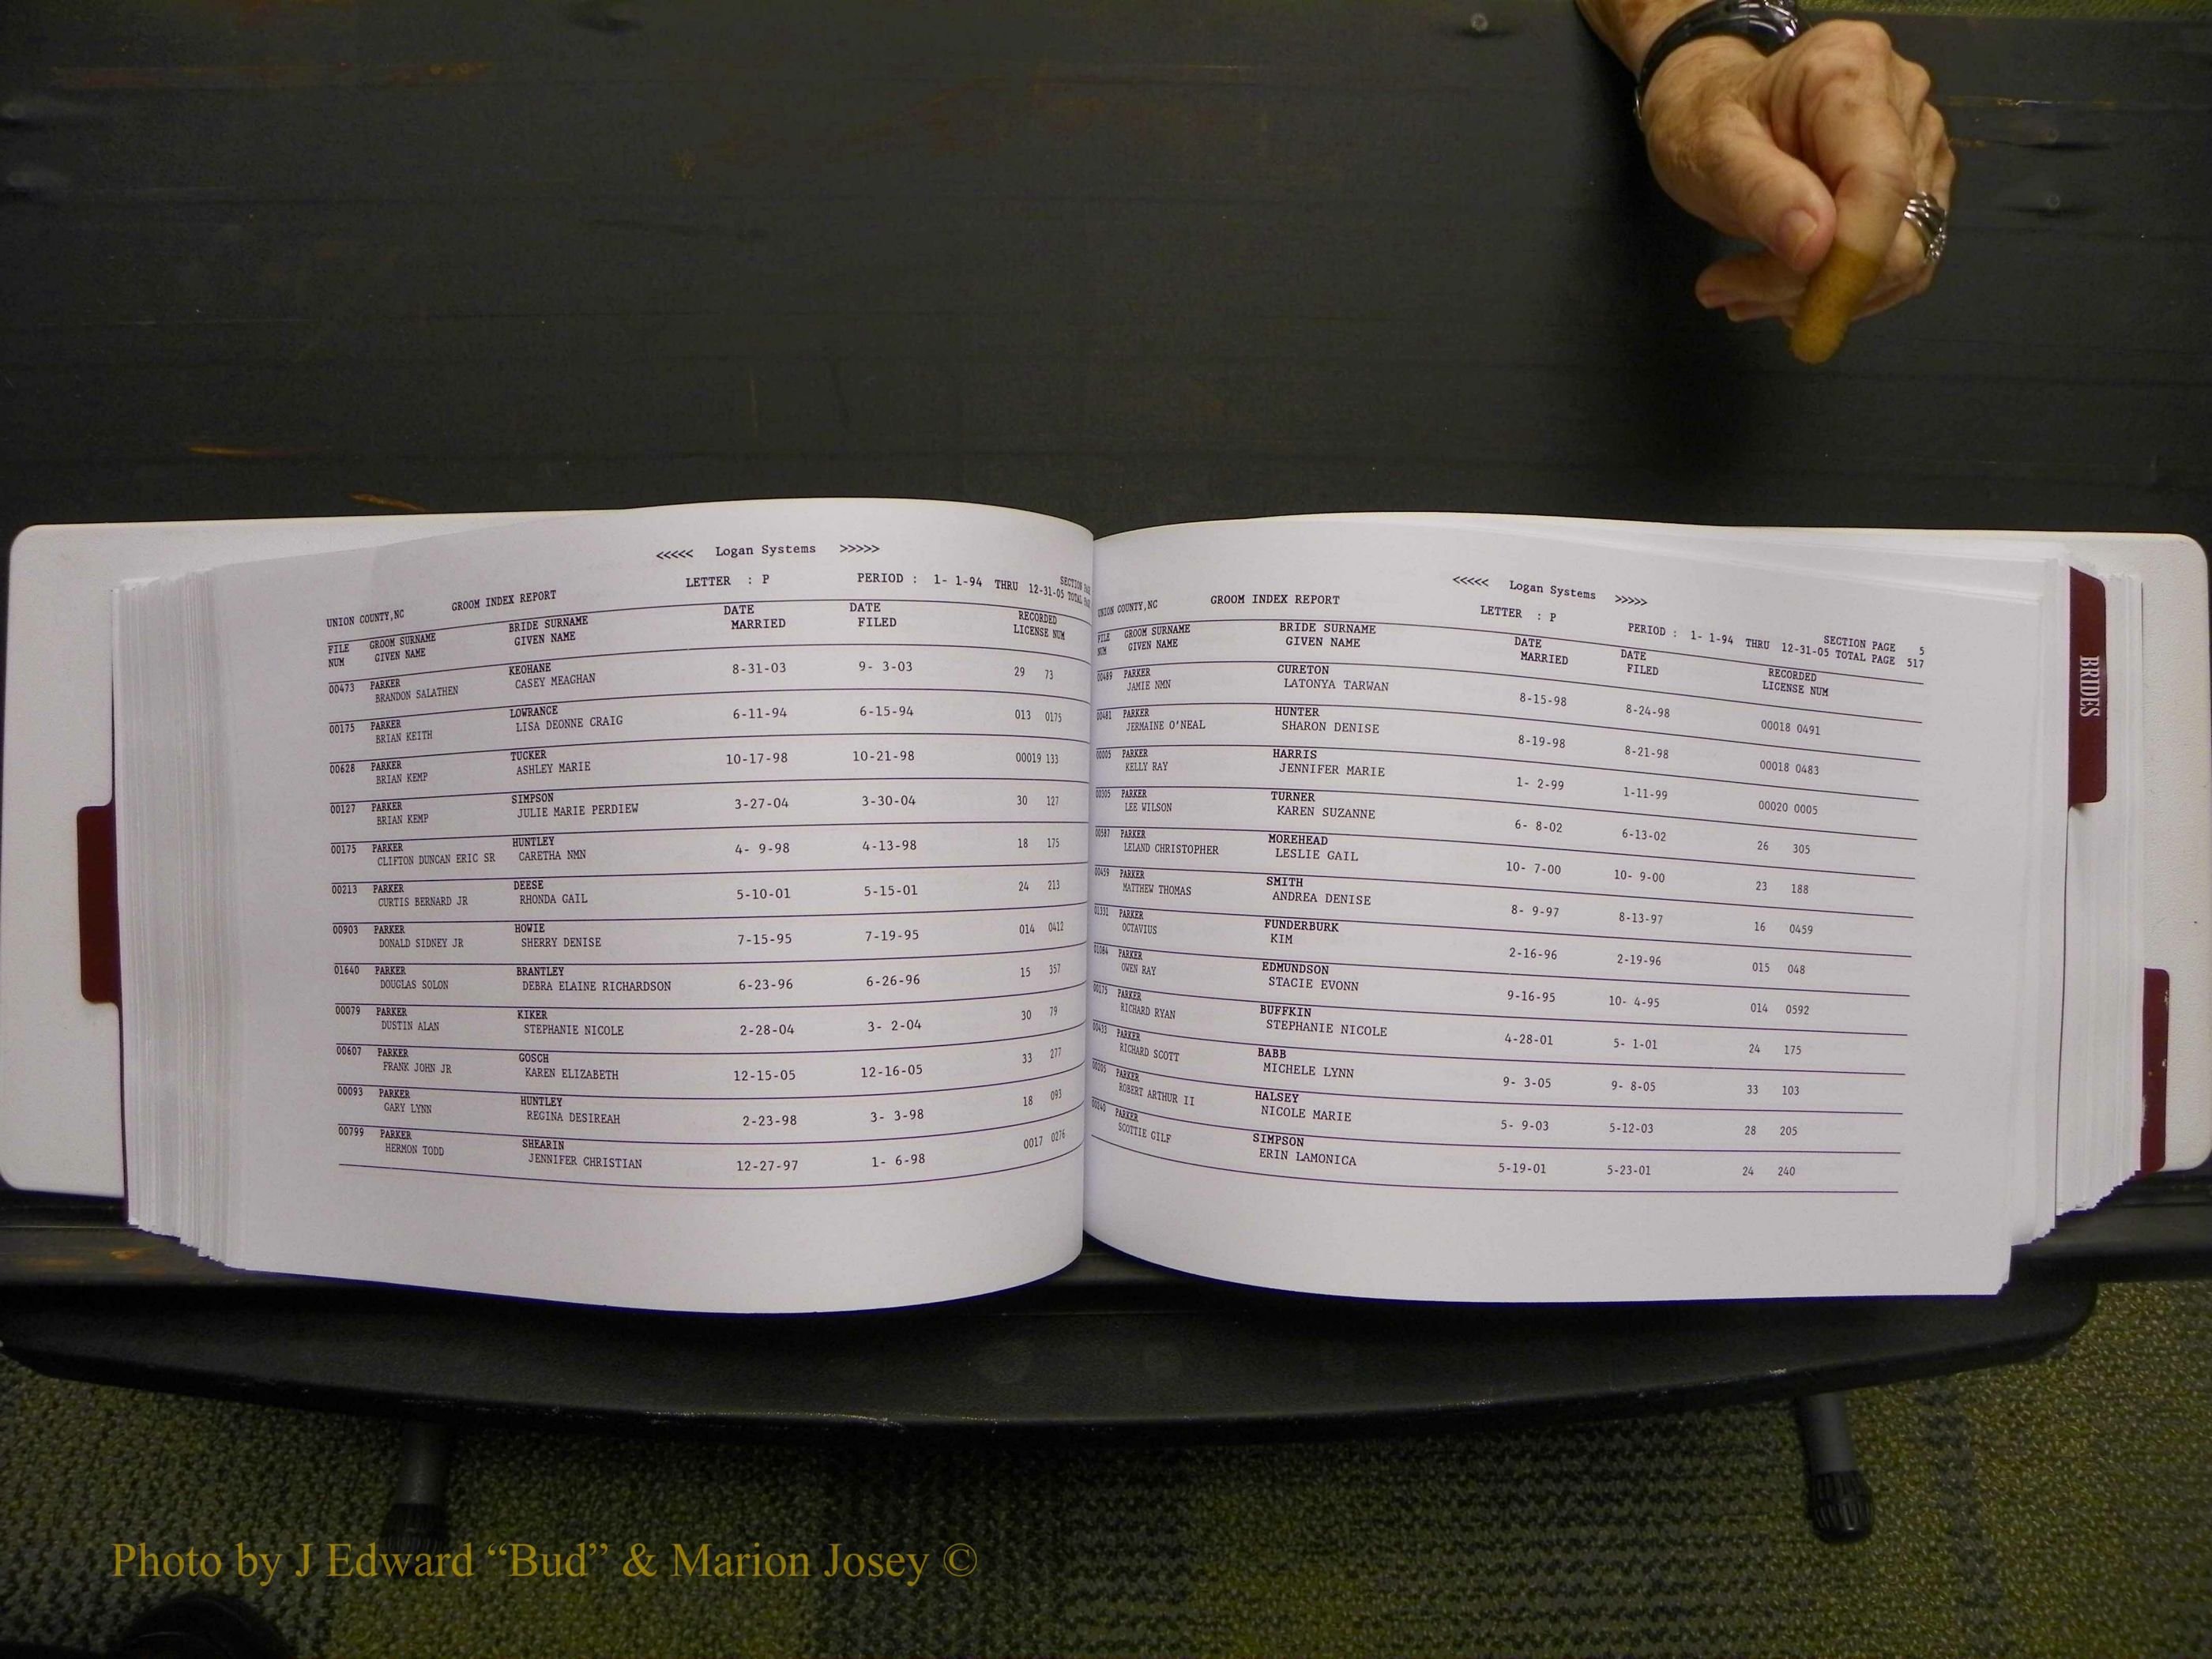 <<<<< Logan Systems >>>>>
UNION COUNTY,NC GROOM INDEX REPORT LETTER : P PERIOD : 1- 1-94 THRU 12-31-05 SECTION TOTAL
FILE NUM GROOM SURNAME GIVEN NAME BRIDE SURNAME GIVEN NAME DATE MARRIED DATE FILED RECORDED LICENSE NUM
00473 PARKER KEOHANE 8-31-03 9- 3-03 29 73
BRANDON SALATHEN CASEY MEAGHAN
00175 PARKER LOWRANCE 6-11-94 6-15-94 013 0175
BRIAN KEITH LISA DEONNE CRAIG
00628 PARKER TUCKER 10-17-98 10-21-98 00019 133
BRIAN KEMP ASHLEY MARIE
00127 PARKER SIMPSON 3-27-04 3-30-04 30 127
BRIAN KEMP JULIE MARIE PERDIEW
00175 PARKER HUNTLEY 4- 9-98 4-13-98 18 175
CLIFTON DUNCAN ERIC SR CARETHA NMN
00213 PARKER DEESE 5-10-01 5-15-01 24 213
CURTIS BERNARD JR RHONDA GAIL
00903 PARKER HOWIE 7-15-95 7-19-95 014 0412
DONALD SIDNEY JR SHERRY DENISE
01640 PARKER BRANTLEY 6-23-96 6-26-96 15 357
DOUGLAS SOLON DEBRA ELAINE RICHARDSON
00079 PARKER KIKER 2-28-04 3- 2-04 30 79
DUSTIN ALAN STEPHANIE NICOLE
00607 PARKER GOSCH 12-15-05 12-16-05 33 277
FRANK JOHN JR KAREN ELIZABETH
00093 PARKER HUNTLEY 2-23-98 3- 3-98 18 093
GARY LYNN REGINA DESIREAH
00799 PARKER SHEARIN 12-27-97 1- 6-98 0017 0276
HERMON TODD JENNIFER CHRISTIAN
<<<<< Logan Systems >>>>>
UNION COUNTY,NC GROOM INDEX REPORT LETTER : P PERIOD : 1- 1-94 THRU 12-31-05 SECTION PAGE 5 TOTAL PAGE 517
FILE NUM GROOM SURNAME GIVEN NAME BRIDE SURNAME GIVEN NAME DATE MARRIED DATE FILED RECORDED LICENSE NUM
00489 PARKER CURETON 8-15-98 8-24-98 00018 0491
JAMIE NMN LATONYA TARWAN
00481 PARKER HUNTER 8-19-98 8-21-98 00018 0483
JERMAINE O'NEAL SHARON DENISE
00005 PARKER HARRIS 1- 2-99 1-11-99 00020 0005
KELLY RAY JENNIFER MARIE
00305 PARKER TURNER 6- 8-02 6-13-02 26 305
LEE WILSON KAREN SUZANNE
00587 PARKER MOREHEAD 10- 7-00 10- 9-00 23 188
LELAND CHRISTOPHER LESLIE GAIL
00459 PARKER SMITH 8- 9-97 8-13-97 16 0459
MATTHEW THOMAS ANDREA DENISE
01331 PARKER FUNDERBURK 2-16-96 2-19-96 015 048
OCTAVIUS KIM
01084 PARKER EDMUNDSON 9-16-95 10- 4-95 014 0592
OWEN RAY STACIE EVONN
00175 PARKER BUFFKIN 4-28-01 5- 1-01 24 175
RICHARD RYAN STEPHANIE NICOLE
00433 PARKER BABB 9- 3-05 9- 8-05 33 103
RICHARD SCOTT MICHELE LYNN
00205 PARKER HALSEY 5- 9-03 5-12-03 28 205
ROBERT ARTHUR II NICOLE MARIE
00240 PARKER SIMPSON 5-19-01 5-23-01 24 240
SCOTTIE GILF ERIN LAMONICA
BRIDES
Photo by J Edward “Bud” & Marion Josey ©